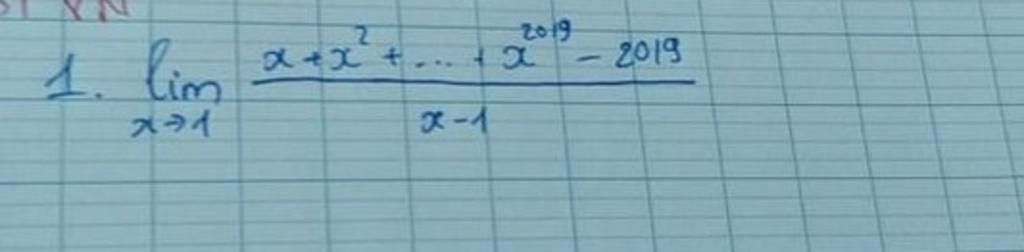 1. lim x→1 (x + x² + ... + x²⁰¹⁹ - 2019) / (x - 1)